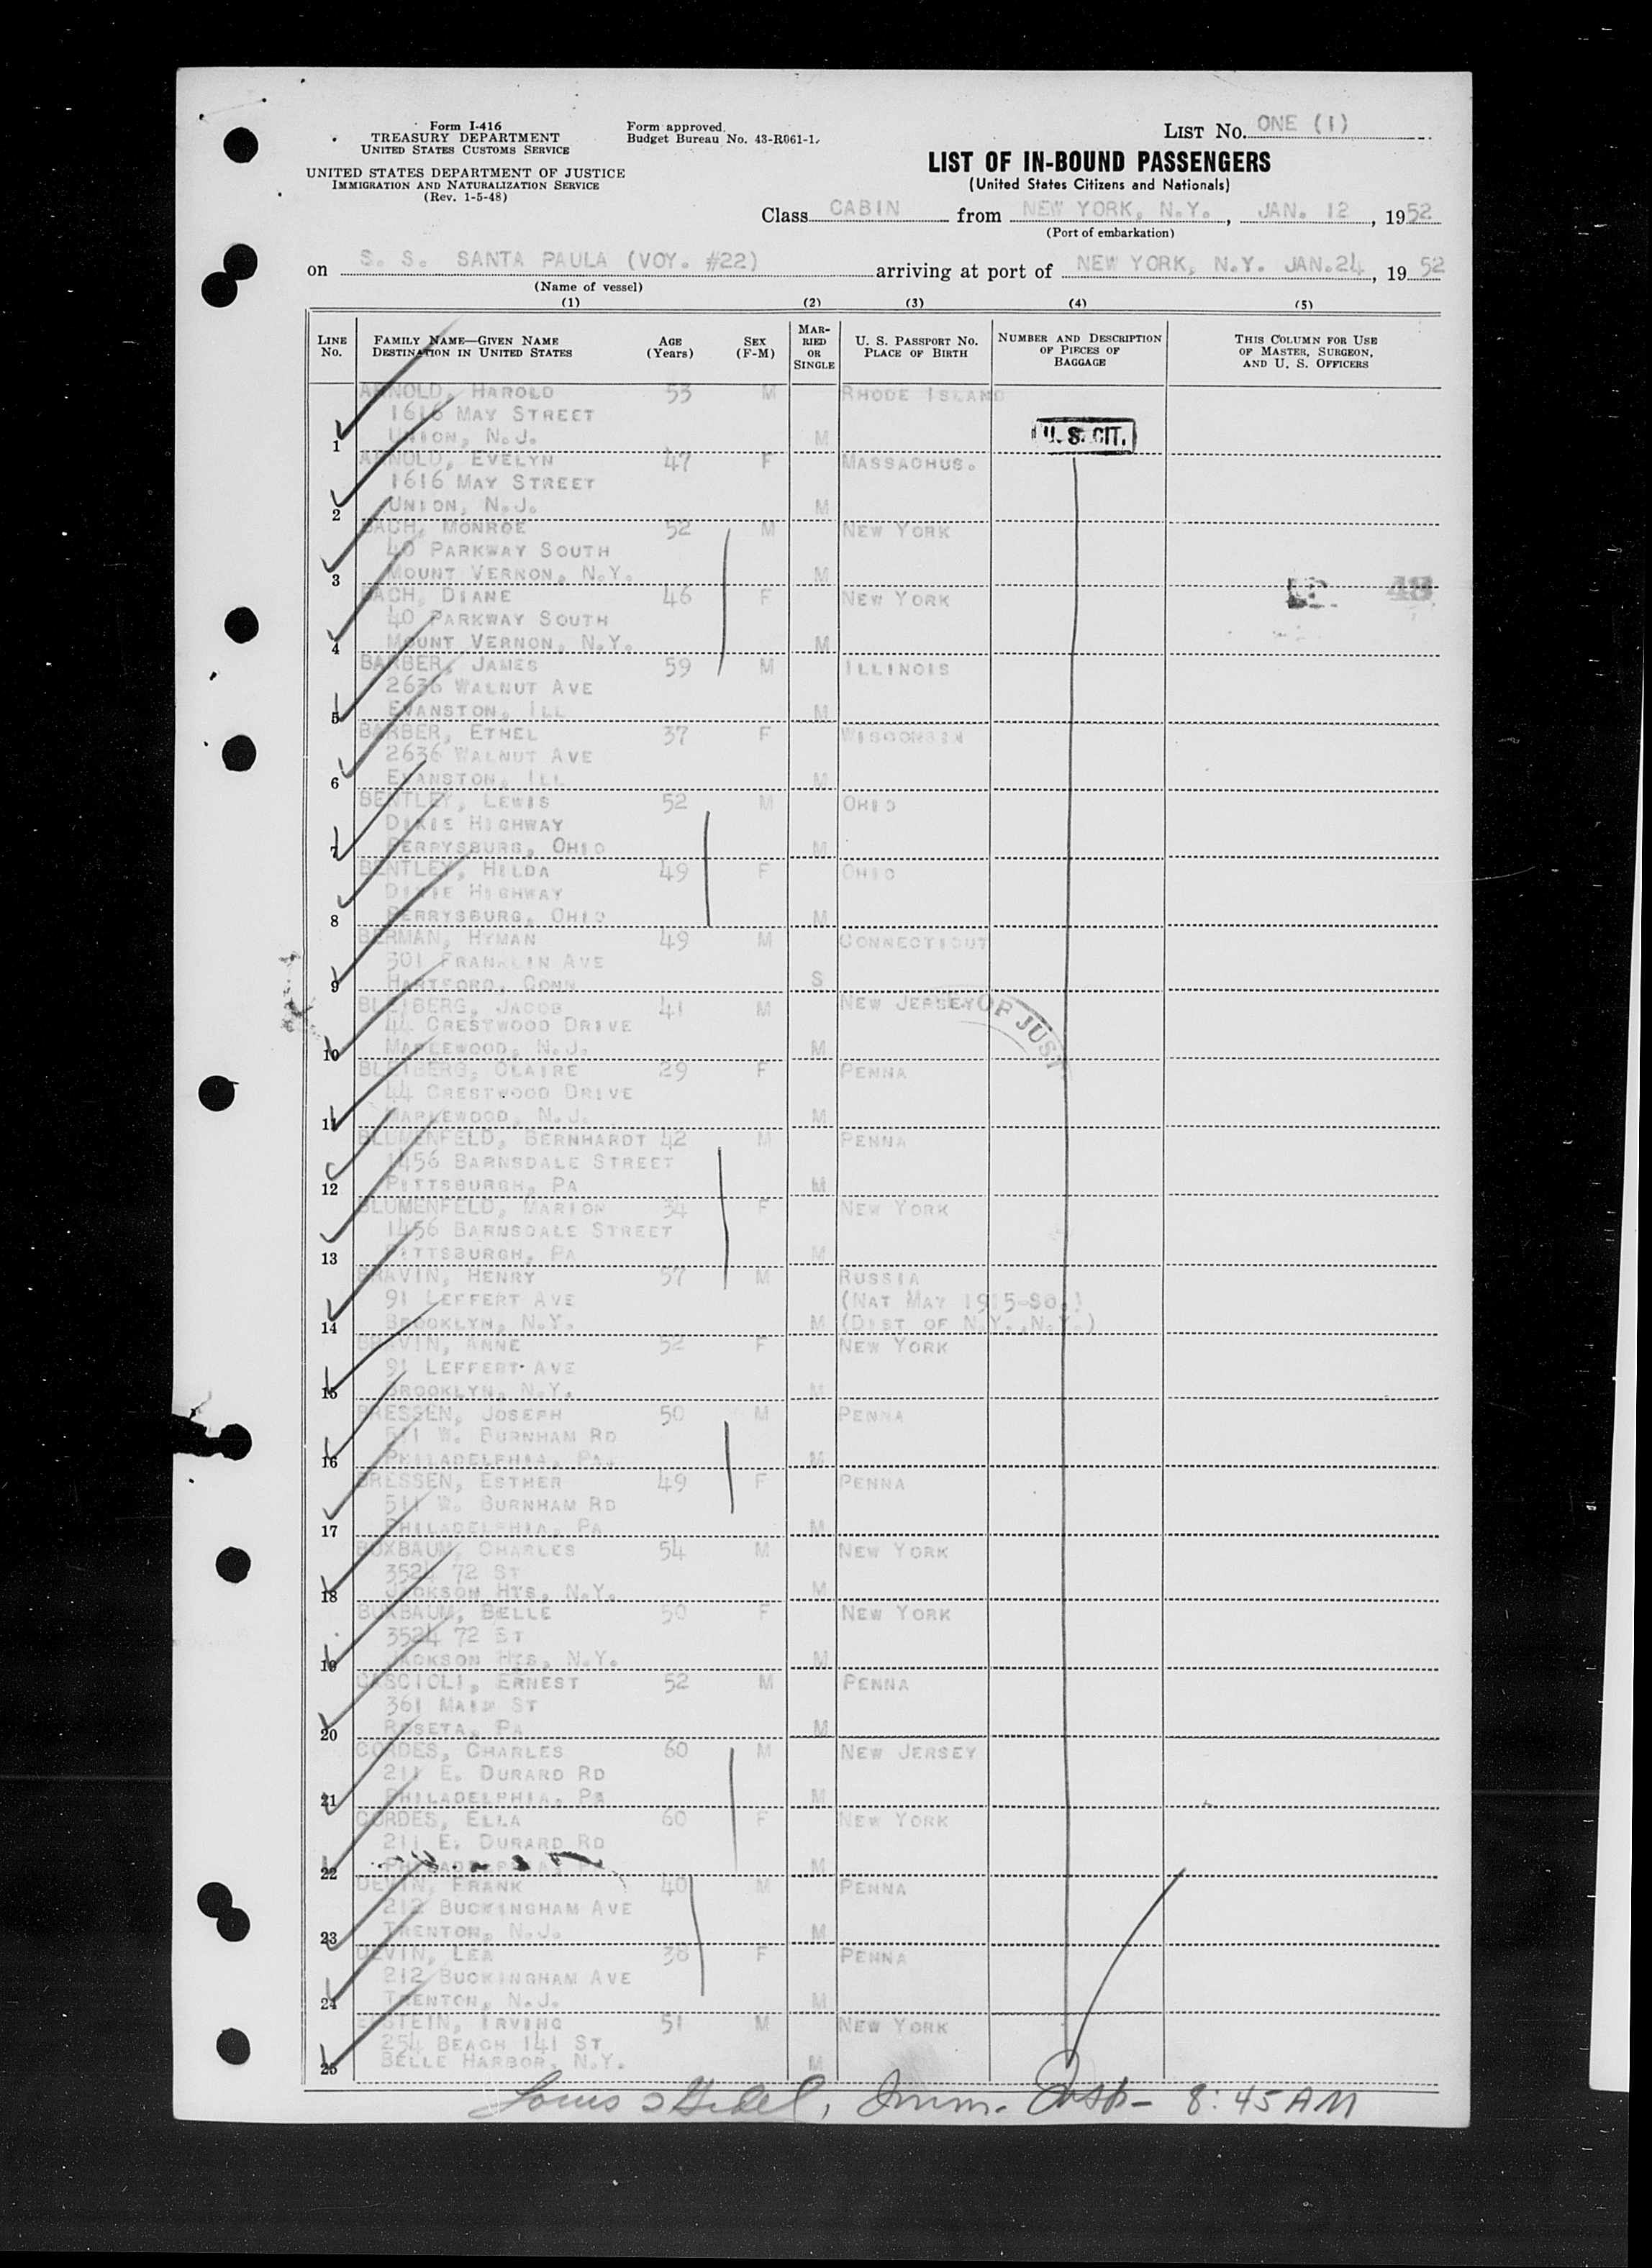 Form I-416
TREASURY DEPARTMENT
UNITED STATES CUSTOMS SERVICE
UNITED STATES DEPARTMENT OF JUSTICE
IMMIGRATION AND NATURALIZATION SERVICE
(Rev. 1-5-48)
Form approved.
Budget Bureau No. 43-R061-1.
LIST NO. ONE (1)
LIST OF IN-BOUND PASSENGERS
(United States Citizens and Nationals)
Class CABIN from NEW YORK, N.Y., JAN. 12, 1952
(Port of embarkation)
on S. S. SANTA PAULA (VOY. #22) arriving at port of NEW YORK, N.Y. JAN.24, 1952
(Name of vessel)
(1) (2) (3) (4) (5)
LINE NO.
FAMILY NAME—GIVEN NAME
DESTINATION IN UNITED STATES
AGE (Years)
SEX (F-M)
MARRIED OR SINGLE
U. S. PASSPORT NO.
PLACE OF BIRTH
NUMBER AND DESCRIPTION OF PIECES OF BAGGAGE
THIS COLUMN FOR USE OF MASTER, SURGEON, AND U. S. OFFICERS
ARNOLD, HAROLD 53 M RHODE ISLAND
1616 MAY STREET
1 UNION, N.J. M U. S. CIT.
ARNOLD, EVELYN 47 F MASSACHUS.
1616 MAY STREET
2 UNION, N.J. M
BACH, MONROE 52 M NEW YORK
40 PARKWAY SOUTH
3 MOUNT VERNON, N.Y. M
BACH, DIANE 46 F NEW YORK
40 PARKWAY SOUTH
4 MOUNT VERNON, N.Y. M
BARBER, JAMES 59 M ILLINOIS
2636 WALNUT AVE
5 EVANSTON, ILL M
BARBER, ETHEL 37 F WISCONSIN
2636 WALNUT AVE
6 EVANSTON, ILL M
BENTLEY, LEWIS 52 M OHIO
DIXIE HIGHWAY
7 PERRYSBURG, OHIO M
BENTLEY, HILDA 49 F OHIO
DIXIE HIGHWAY
8 PERRYSBURG, OHIO M
BERMAN, HYMAN 49 M CONNECTICUT
301 FRANKLIN AVE
9 HARTFORD, CONN S
BLEIBERG, JACOB 41 M NEW JERSEY OF JUST
44 CRESTWOOD DRIVE
10 MAPLEWOOD, N.J. M
BLEIBERG, CLAIRE 29 F PENNA
44 CRESTWOOD DRIVE
11 MAPLEWOOD, N.J. M
BLUMENFELD, BERNHARDT 42 M PENNA
1456 BARNSDALE STREET
12 PITTSBURGH, PA M
BLUMENFELD, MARION 34 F NEW YORK
1456 BARNSDALE STREET
13 PITTSBURGH, PA M
BRAVIN, HENRY 57 M RUSSIA
91 LEFFERT AVE (NAT MAY 1915-SO.)
14 BROOKLYN, N.Y. M (DIST OF N.Y.,N.Y.)
BRAVIN, ANNE 52 F NEW YORK
91 LEFFERT AVE
15 BROOKLYN, N.Y. M
BRESSEN, JOSEPH 50 M PENNA
511 W. BURNHAM RD
16 PHILADELPHIA, PA. M
BRESSEN, ESTHER 49 F PENNA
511 W. BURNHAM RD
17 PHILADELPHIA, PA M
BUXBAUM, CHARLES 54 M NEW YORK
3524 72 ST
18 JACKSON HTS, N.Y. M
BUXBAUM, BELLE 50 F NEW YORK
3524 72 ST
19 JACKSON HTS, N.Y. M
CASCIOLI, ERNEST 52 M PENNA
361 MAIN ST
20 ROSETA, PA M
CORDES, CHARLES 60 M NEW JERSEY
211 E. DURARD RD
21 PHILADELPHIA, PA M
CORDES, ELLA 60 F NEW YORK
211 E. DURARD RD
22 PHILADELPHIA, PA M
DEVIN, FRANK 40 M PENNA
212 BUCKINGHAM AVE
23 TRENTON, N.J. M
DEVIN, LEA 38 F PENNA
212 BUCKINGHAM AVE
24 TRENTON, N.J. M
EPSTEIN, IRVING 51 M NEW YORK
254 BEACH 141 ST
25 BELLE HARBOR, N.Y. M
Louis Imm. Insp- 8:45 AM